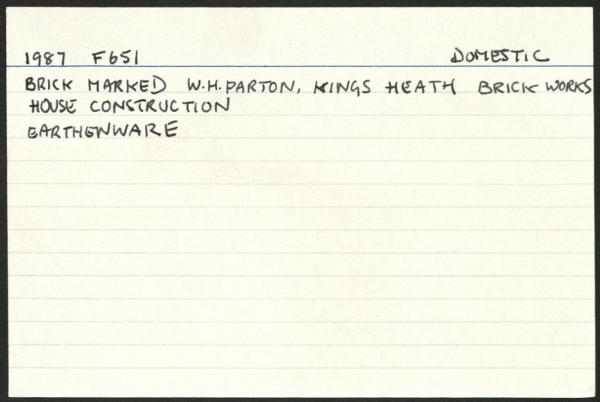 1987 F651 DOMESTIC
BRICK MARKED W.H. PARTON, KINGS HEATH BRICK WORKS
HOUSE CONSTRUCTION
EARTHENWARE